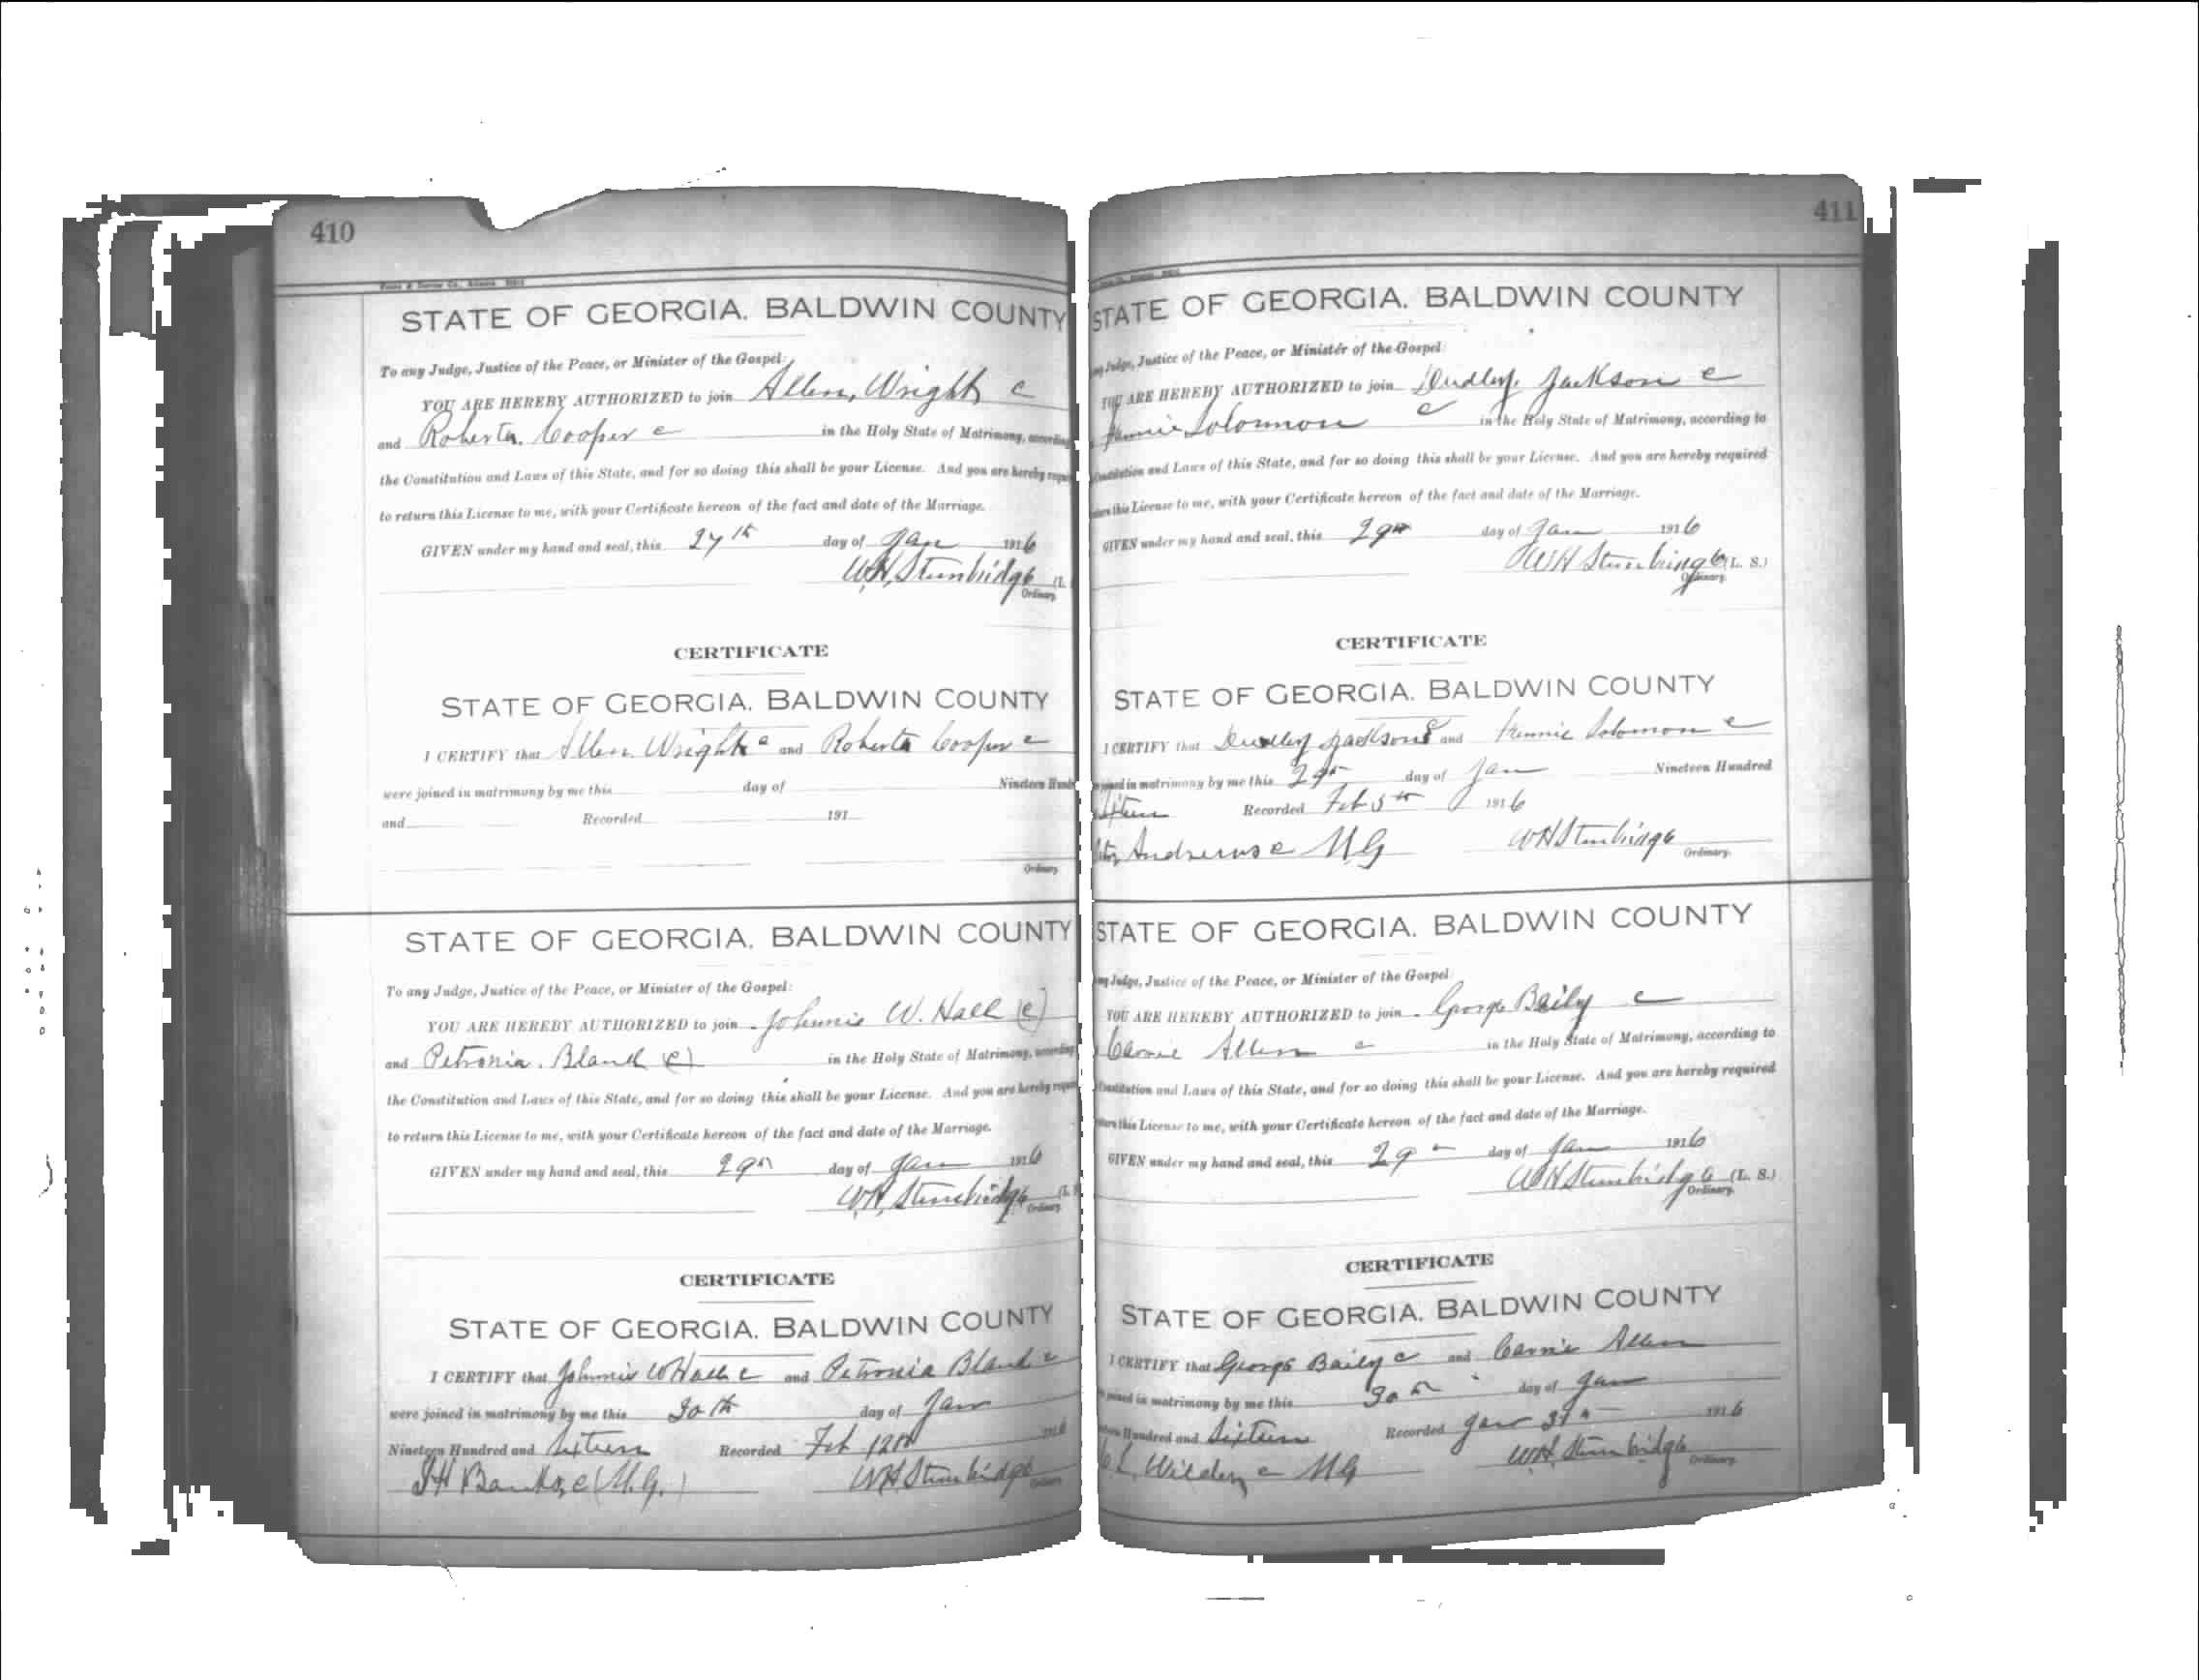 410
STATE OF GEORGIA. BALDWIN COUNTY
To any Judge, Justice of the Peace, or Minister of the Gospel:
YOU ARE HEREBY AUTHORIZED to join Allen, Wright c
and Roberta. Cooper c in the Holy State of Matrimony, according
the Constitution and Laws of this State, and for so doing this shall be your License. And you are hereby
to return this License to me, with your Certificate hereon of the fact and date of the Marriage.
GIVEN under my hand and seal, this 27th day of Jan 1916
W.H. Stembridge (L.
Ordinary.
CERTIFICATE
STATE OF GEORGIA. BALDWIN COUNTY
I CERTIFY that Allen Wright c and Roberta Cooper c
were joined in matrimony by me this day of Nineteen
and Recorded 191
Ordinary
STATE OF GEORGIA. BALDWIN COUNTY
To any Judge, Justice of the Peace, or Minister of the Gospel:
YOU ARE HEREBY AUTHORIZED to join Johnnie W. Hall (c)
and Petronia. Bland (c) in the Holy State of Matrimony, according
the Constitution and Laws of this State, and for so doing this shall be your License. And you are hereby
to return this License to me, with your Certificate hereon of the fact and date of the Marriage.
GIVEN under my hand and seal, this 29th day of Jan 1916
W.H. Stembridge (L.
Ordinary
CERTIFICATE
STATE OF GEORGIA. BALDWIN COUNTY
I CERTIFY that Johnnie W Hall c and Petronia Bland c
were joined in matrimony by me this 30th day of Jan
Nineteen Hundred and Sixteen Recorded Feb 12th 1916
Banks, c (M.G.) WH Stembridge
Ordinary
411
STATE OF GEORGIA. BALDWIN COUNTY
Judge, Justice of the Peace, or Minister of the Gospel:
YOU ARE HEREBY AUTHORIZED to join Dudley Jackson c
Solomon c in the Holy State of Matrimony, according to
Constitution and Laws of this State, and for so doing this shall be your License. And you are hereby required
this License to me, with your Certificate hereon of the fact and date of the Marriage.
GIVEN under my hand and seal, this 29th day of Jan 1916
WH Stembridge (L. S.)
Ordinary.
CERTIFICATE
STATE OF GEORGIA. BALDWIN COUNTY
I CERTIFY that Dudley Jackson c and Solomon c
joined in matrimony by me this 29th day of Jan Nineteen Hundred
Recorded Feb 5th 1916
Andrews c M.G WH Stembridge
Ordinary.
STATE OF GEORGIA. BALDWIN COUNTY
Judge, Justice of the Peace, or Minister of the Gospel:
YOU ARE HEREBY AUTHORIZED to join George Baily c
Carrie Allen c in the Holy State of Matrimony, according to
Constitution and Laws of this State, and for so doing this shall be your License. And you are hereby required
this License to me, with your Certificate hereon of the fact and date of the Marriage.
GIVEN under my hand and seal, this 29 day of Jan 1916
WH Stembridge (L. S.)
Ordinary.
CERTIFICATE
STATE OF GEORGIA. BALDWIN COUNTY
I CERTIFY that George Baily c and Carrie Allen
joined in matrimony by me this 30th day of Jan
Hundred and Sixteen Recorded Jan 31 1916
c M.G WH Stembridge
Ordinary.